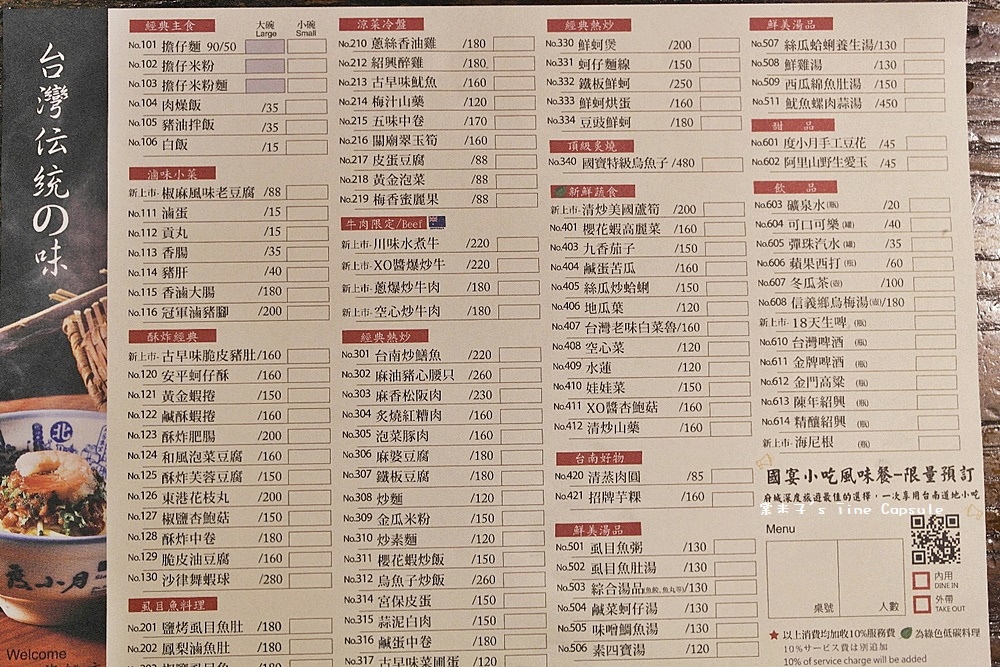 台灣伝統の味
經典主食 大碗 Large 小碗 Small
No.101 擔仔麵 90/50
No.102 擔仔米粉
No.103 擔仔米粉麵
No.104 肉燥飯 /35
No.105 豬油拌飯 /35
No.106 白飯 /15
滷味小菜
新上市· 椒麻風味老豆腐 /88
No.111 滷蛋 /15
No.112 貢丸 /15
No.113 香腸 /35
No.114 豬肝 /40
No.115 香滷大腸 /180
No.116 冠軍滷豬腳 /200
酥炸經典
新上市· 古早味脆皮豬肚/160
No.120 安平蚵仔酥 /160
No.121 黃金蝦捲 /150
No.122 鹹酥蝦捲 /160
No.123 酥炸肥腸 /200
No.124 和風泡菜豆腐 /160
No.125 酥炸芙蓉豆腐 /150
No.126 東港花枝丸 /200
No.127 椒鹽杏鮑菇 /150
No.128 酥炸中卷 /180
No.129 脆皮油豆腐 /160
No.130 沙律舞蝦球 /280
虱目魚料理
No.201 鹽烤虱目魚肚 /180
No.202 鳳梨滷魚肚 /180
涼菜冷盤
No.210 蔥絲香油雞 /180
No.212 紹興醉雞 /180
No.213 古早味魷魚 /160
No.214 梅汁山藥 /120
No.215 五味中卷 /170
No.216 關廟翠玉筍 /160
No.217 皮蛋豆腐 /88
No.218 黃金泡菜 /88
No.219 梅香蜜蘿果 /88
牛肉限定/Beef
新上市· 川味水煮牛 /220
新上市· XO醬爆炒牛 /220
新上市· 蔥爆炒牛肉 /180
新上市· 空心炒牛肉 /180
經典熱炒
No.301 台南炒鱔魚 /220
No.302 麻油豬心腰只 /260
No.303 麻香松阪肉 /230
No.304 炙燒紅糟肉 /160
No.305 泡菜豚肉 /160
No.306 麻婆豆腐 /180
No.307 鐵板豆腐 /180
No.308 炒麵 /120
No.309 金瓜米粉 /150
No.310 炒素麵 /120
No.311 櫻花蝦炒飯 /150
No.312 烏魚子炒飯 /260
No.314 宮保皮蛋 /150
No.315 蒜泥白肉 /150
No.316 鹹蛋中卷 /180
No.317 古早味菜圃蛋 /120
經典熱炒
No.330 鮮蚵煲 /200
No.331 蚵仔麵線 /150
No.332 鐵板鮮蚵 /250
No.333 鮮蚵烘蛋 /160
No.334 豆豉鮮蚵 /180
頂級炙燒
No.340 國寶特級烏魚子 /480
新鮮蔬食
新上市· 清炒美國蘆筍 /200
No.401 櫻花蝦高麗菜 /160
No.403 九香茄子 /150
No.404 鹹蛋苦瓜 /160
No.405 絲瓜炒蛤蜊 /150
No.406 地瓜葉 /120
No.407 台灣老味白菜魯/160
No.408 空心菜 /120
No.409 水蓮 /120
No.410 娃娃菜 /150
No.411 XO醬杏鮑菇 /160
No.412 清炒山藥 /160
台南好物
No.420 清蒸肉圓 /85
No.421 招牌芋粿 /160
鮮美湯品
No.501 虱目魚粥 /130
No.502 虱目魚肚湯 /130
No.503 綜合湯品(魚餃、魚丸等)/130
No.504 鹹菜蚵仔湯 /130
No.505 味噌鯛魚湯 /130
No.506 素四寶湯 /120
鮮美湯品
No.507 絲瓜蛤蜊養生湯/130
No.508 鮮雞湯 /130
No.509 西瓜綿魚肚湯 /150
No.511 魷魚螺肉蒜湯 /450
甜 品
No.601 度小月手工豆花 /45
No.602 阿里山野生愛玉 /45
飲 品
No.603 礦泉水(瓶) /20
No.604 可口可樂(罐) /40
No.605 彈珠汽水(罐) /35
No.606 蘋果西打(瓶) /60
No.607 冬瓜茶(壺) /100
No.608 信義鄉烏梅湯(壺)/180
新上市· 18天生啤 (瓶)
No.610 台灣啤酒 (瓶)
No.611 金牌啤酒 (瓶)
No.612 金門高粱 (瓶)
No.613 陳年紹興 (瓶)
No.614 精釀紹興 (瓶)
新上市· 海尼根 (瓶)
國宴小吃風味餐-限量預訂
府城深度旅遊最佳的選擇，一次享用台南道地小吃
's time Capsule
Menu
桌號 人數
內用 DINE IN
外帶 TAKE OUT
★ 以上消費均加收10%服務費 為綠色低碳料理
10%サービス費は別追加
10% of service charge will be added
度小月
Welcome